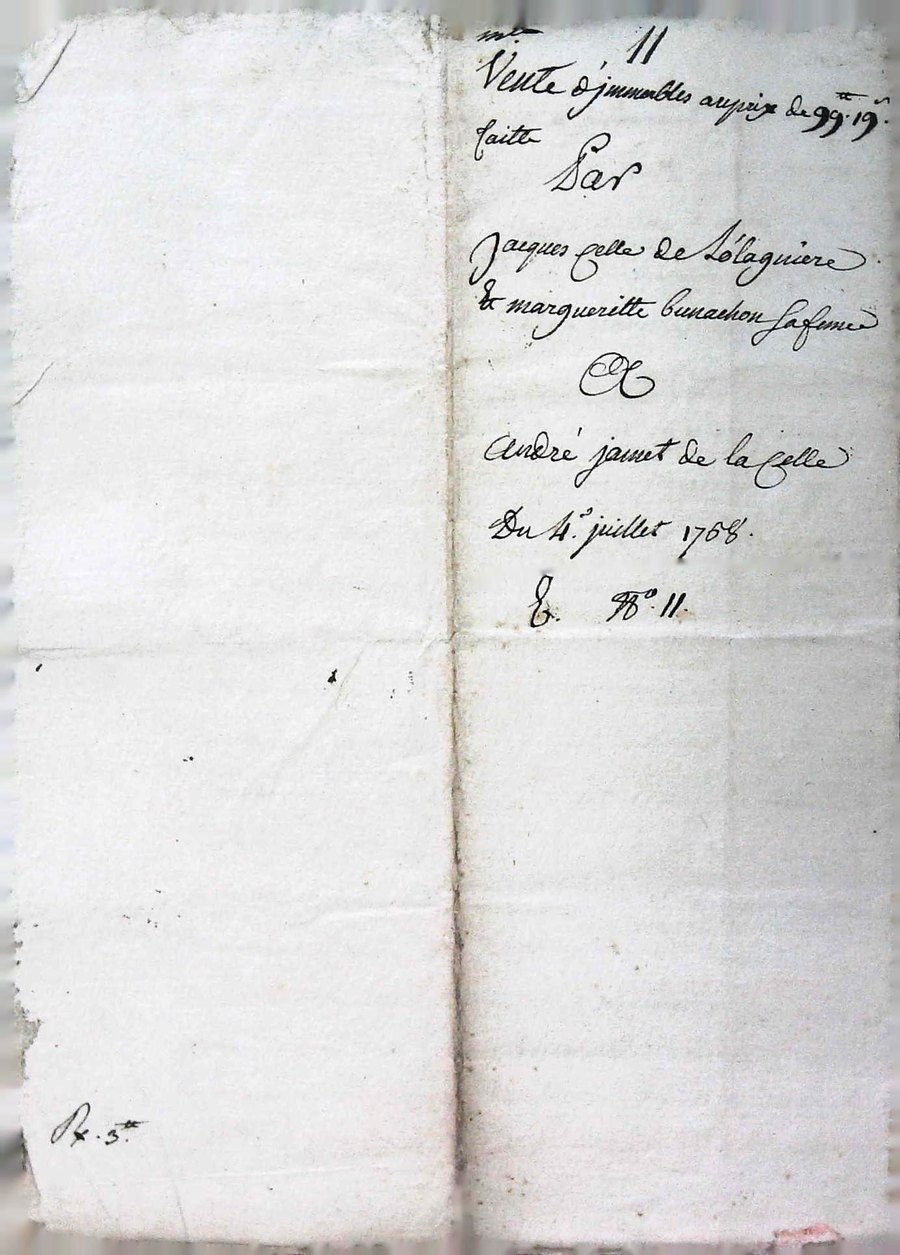 11
Vente d'jmmeubles au prix de 99 ₶ 19 s.
faitte
Par
Jacques Celle de
& margueritte bunachon sa femme
A
André jamet de la Celle
Du 4.e juillet 1768.
E. N.o 11.
Rx. 3 ₶